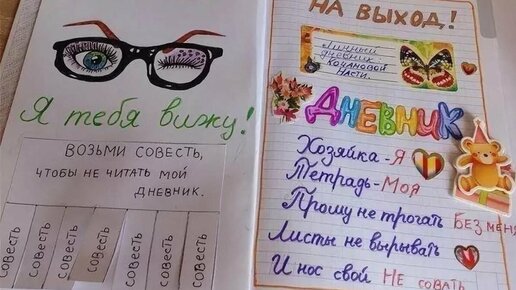 Я тебя вижу!
ВОЗЬМИ СОВЕСТЬ,
ЧТОБЫ НЕ ЧИТАТЬ МОЙ
ДНЕВНИК.
СОВЕСТЬ
СОВЕСТЬ
СОВЕСТЬ
СОВЕСТЬ
СОВЕСТЬ
СОВЕСТЬ
СОВЕСТЬ
НА ВЫХОД!
Личный
дневник
Кочановой
Насти.
ДНЕВНИК
Хозяйка-Я
Тетрадь-Моя
Прошу не трогать БЕЗ МЕНЯ
Листы не вырывать
И нос свой НЕ СОВАТЬ